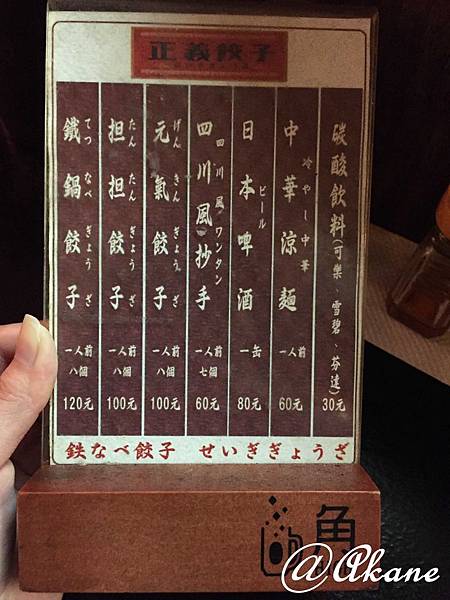 正義餃子
碳酸飲料(可樂、雪碧、芬達) 30元
中華涼麵 一人前 60元
冷やし中華
日本啤酒 一缶 80元
ビール
四川風抄手 一人前 七個 60元
四川風ワンタン
元氣餃子 一人前 八個 100元
げんきんぎょうざ
担担餃子 一人前 八個 100元
たんたんぎょうざ
鐵鍋餃子 一人前 八個 120元
てつなべぎょうざ
鉄なべ餃子 せいぎぎょうざ
魚
@Akane